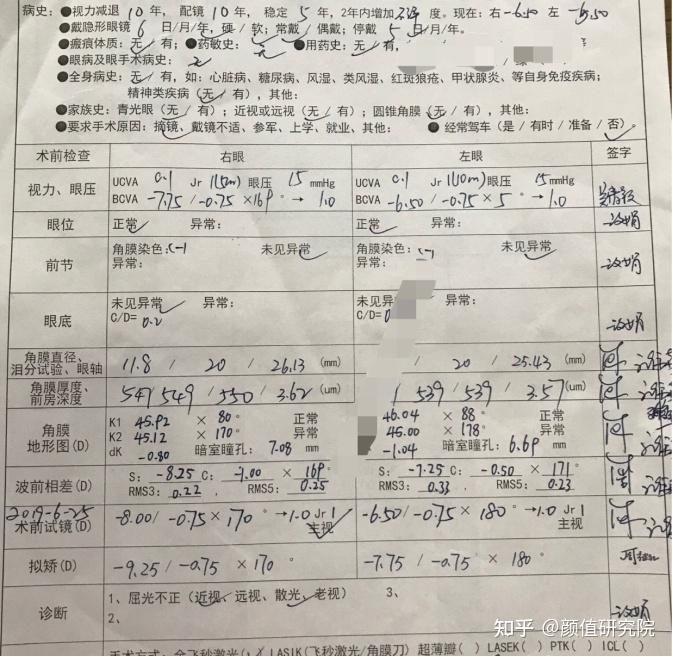 病史: ●视力减退 10 年, 配镜 10 年, 稳定 5 年, 2年内增加 度。现在: 右 -6.50 左 -6.50
●戴隐形眼镜 6 日/月/年, 硬 / 软; 常戴 / 偶戴; 停戴 5 日/月/年。
●瘢痕体质: 无 / 有; ●药敏史: 无 ●用药史: 无 / 有,
●眼病及眼手术病史: 无
●全身病史: 无 / 有, 如: 心脏病、糖尿病、风湿、类风湿、红斑狼疮、甲状腺炎、等自身免疫疾病;
精神类疾病 (无 / 有), 其他:
●家族史: 青光眼 (无 / 有); 近视或远视 (无 / 有); 圆锥角膜 (无 / 有), 其他:
●要求手术原因: 摘镜、戴镜不适、参军、上学、就业、其他: ●经常驾车 (是 / 有时 / 准备 / 否)
术前检查 右眼 左眼 签字
视力、眼压 UCVA 0.1 Jr 1(15cm) 眼压 15 mmHg UCVA 0.1 Jr 1(10cm) 眼压 15 mmHg
BCVA -7.75 / -0.75 ×169° → 1.0 BCVA -6.50 / -0.75 × 5° → 1.0
眼位 正常 异常: 正常 异常:
前节 角膜染色: (-) 未见异常 角膜染色: (-) 未见异常
异常: 异常:
眼底 未见异常 异常: 未见异常 异常:
C/D= 0.2 C/D= 0
角膜直径、泪分试验、眼轴 11.8 / 20 / 26.13 (mm) / 20 / 25.43 (mm)
角膜厚度、前房深度 547 549 / 550 / 3.62 (um) / 539 / 539 / 3.57 (um)
角膜地形图(D) K1 45.92 × 80° 正常 46.04 × 88° 正常
K2 45.12 × 170° 异常 45.00 × 178° 异常
dK -0.80 暗室瞳孔: 7.08 mm -1.04 暗室瞳孔: 6.69 mm
波前相差(D) S: -8.25 C: -1.00 × 169 S: -7.25 C: -0.50 × 171
RMS3: 0.22 RMS5: 0.25 RMS3: 0.33 RMS5: 0.23
2019-6-25
术前试镜(D) -8.00 / -0.75 × 170° → 1.0 Jr 1 -6.50 / -0.75 × 180° → 1.0 Jr 1
主视 主视
拟矫(D) -9.25 / -0.75 × 170° -7.75 / -0.75 × 180°
诊断 1、屈光不正 (近视、远视、散光、老视) 3、
2、
手术方式: 全飞秒激光( ) LASIK(飞秒激光/角膜刀) 超薄瓣( ) LASEK( ) PTK( ) ICL( )
知乎 @颜值研究院